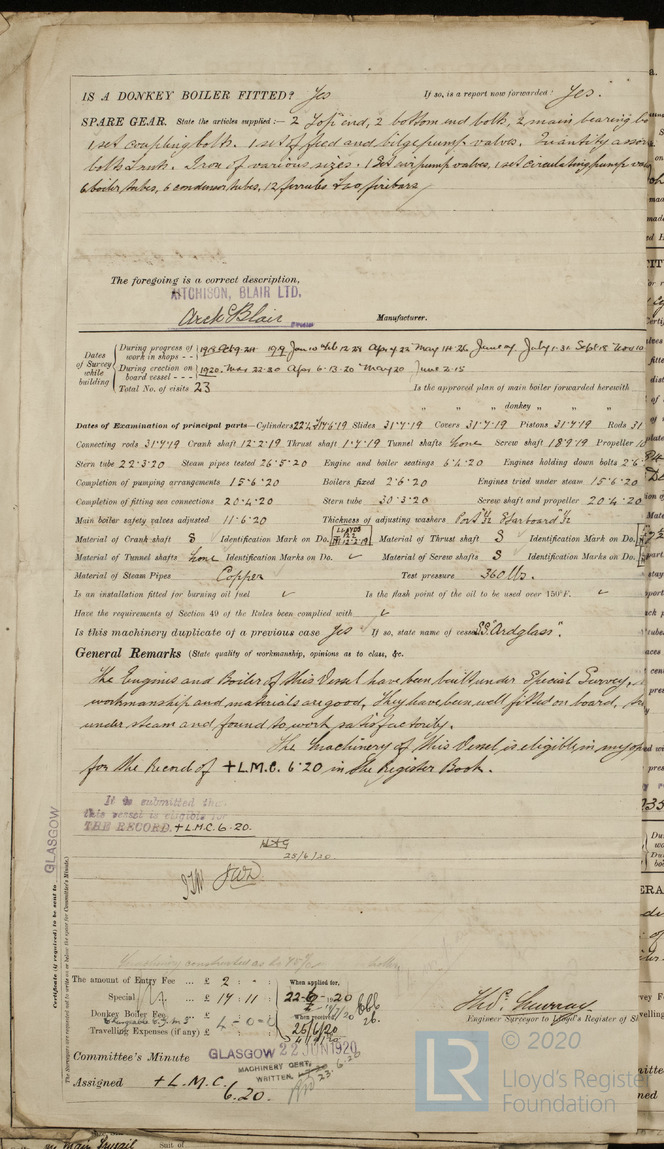 IS A DONKEY BOILER FITTED? Yes If so, is a report now forwarded? Yes.
SPARE GEAR. State the articles supplied:— 2 Top end, 2 bottom end bolts, 2 main bearing bo
1 set coupling bolts. 1 set of feed and bilge pump valves. Quantity assor
bolts & nuts. Iron of various sizes. 1 set air pump valves, 1 set circulating pump val
6 boiler tubes, 6 condenser tubes, 12 ferrules & 20 firebars
The foregoing is a correct description,
AITCHISON, BLAIR LTD.
Arch Blair Manufacturer.
Dates of Survey while building
During progress of work in shops - - Oct 9. 24 1919 Jan 10 Feb 12. 28 Apr 4. 22 May 14. 26 June 24 July 1. 31 Sept 18 Nov 10
During erection on board vessel - - - 1920. Mar 22. 30 Apr 6. 13. 20 May 20 June 2. 15
Total No. of visits 23 Is the approved plan of main boiler forwarded herewith
" " " donkey " " "
Dates of Examination of principal parts—Cylinders Slides 31.7.19 Covers 31.7.19 Pistons 31.7.19 Rods 31
Connecting rods 31.7.19 Crank shaft 12.2.19 Thrust shaft 1.7.19 Tunnel shafts none Screw shaft 18.9.19 Propeller 10
Stern tube 22.3.20 Steam pipes tested 26.5.20 Engine and boiler seatings 6.4.20 Engines holding down bolts 2.6
Completion of pumping arrangements 15.6.20 Boilers fixed 2.6.20 Engines tried under steam 15.6.20
Completion of fitting sea connections 20.4.20 Stern tube 30.3.20 Screw shaft and propeller 20.4.20
Main boiler safety valves adjusted 11.6.20 Thickness of adjusting washers Port 11/32 Starboard 11/32
Material of Crank shaft S Identification Mark on Do. LLOYDS 12.2.19 Material of Thrust shaft S Identification Mark on Do.
Material of Tunnel shafts none Identification Marks on Do. ✓ Material of Screw shafts S Identification Marks on Do.
Material of Steam Pipes Copper Test pressure 360 lbs.
Is an installation fitted for burning oil fuel ✓ Is the flash point of the oil to be used over 150°F. ✓
Have the requirements of Section 49 of the Rules been complied with ✓
Is this machinery duplicate of a previous case Yes If so, state name of vessel S.S. "Ardglass".
General Remarks (State quality of workmanship, opinions as to class, &c.
The Engines and Boiler of this Vessel have been built under Special Survey,
workmanship and materials are good, They have been well fitted on board,
under steam and found to work satisfactorily.
The Machinery of this Vessel is eligible in my op
for the Record of + L.M.C. 6.20 in the Register Book.
It is submitted that
this vessel is eligible for
THE RECORD. + L.M.C. 6.20.
25/6/20.
GLASGOW
Certificate (if required) to be sent to
The Surveyors are requested not to write on or below the space for Committee's Minute.
The amount of Entry Fee ... £ 2 : - : When applied for,
Special ... £ 17 : 11 : 22-6-1920
Donkey Boiler Fee £ 4 - 0 - 0 When received,
Travelling Expenses (if any) £ 25/6/20
Thos. Murray
Engineer Surveyor to Lloyd's Register of S
Committee's Minute GLASGOW 22 JUN 1920
MACHINERY CERT.
WRITTEN. 23.6.20
Assigned + L.M.C.
6.20.
LR
© 2020
Lloyd's Register
Foundation